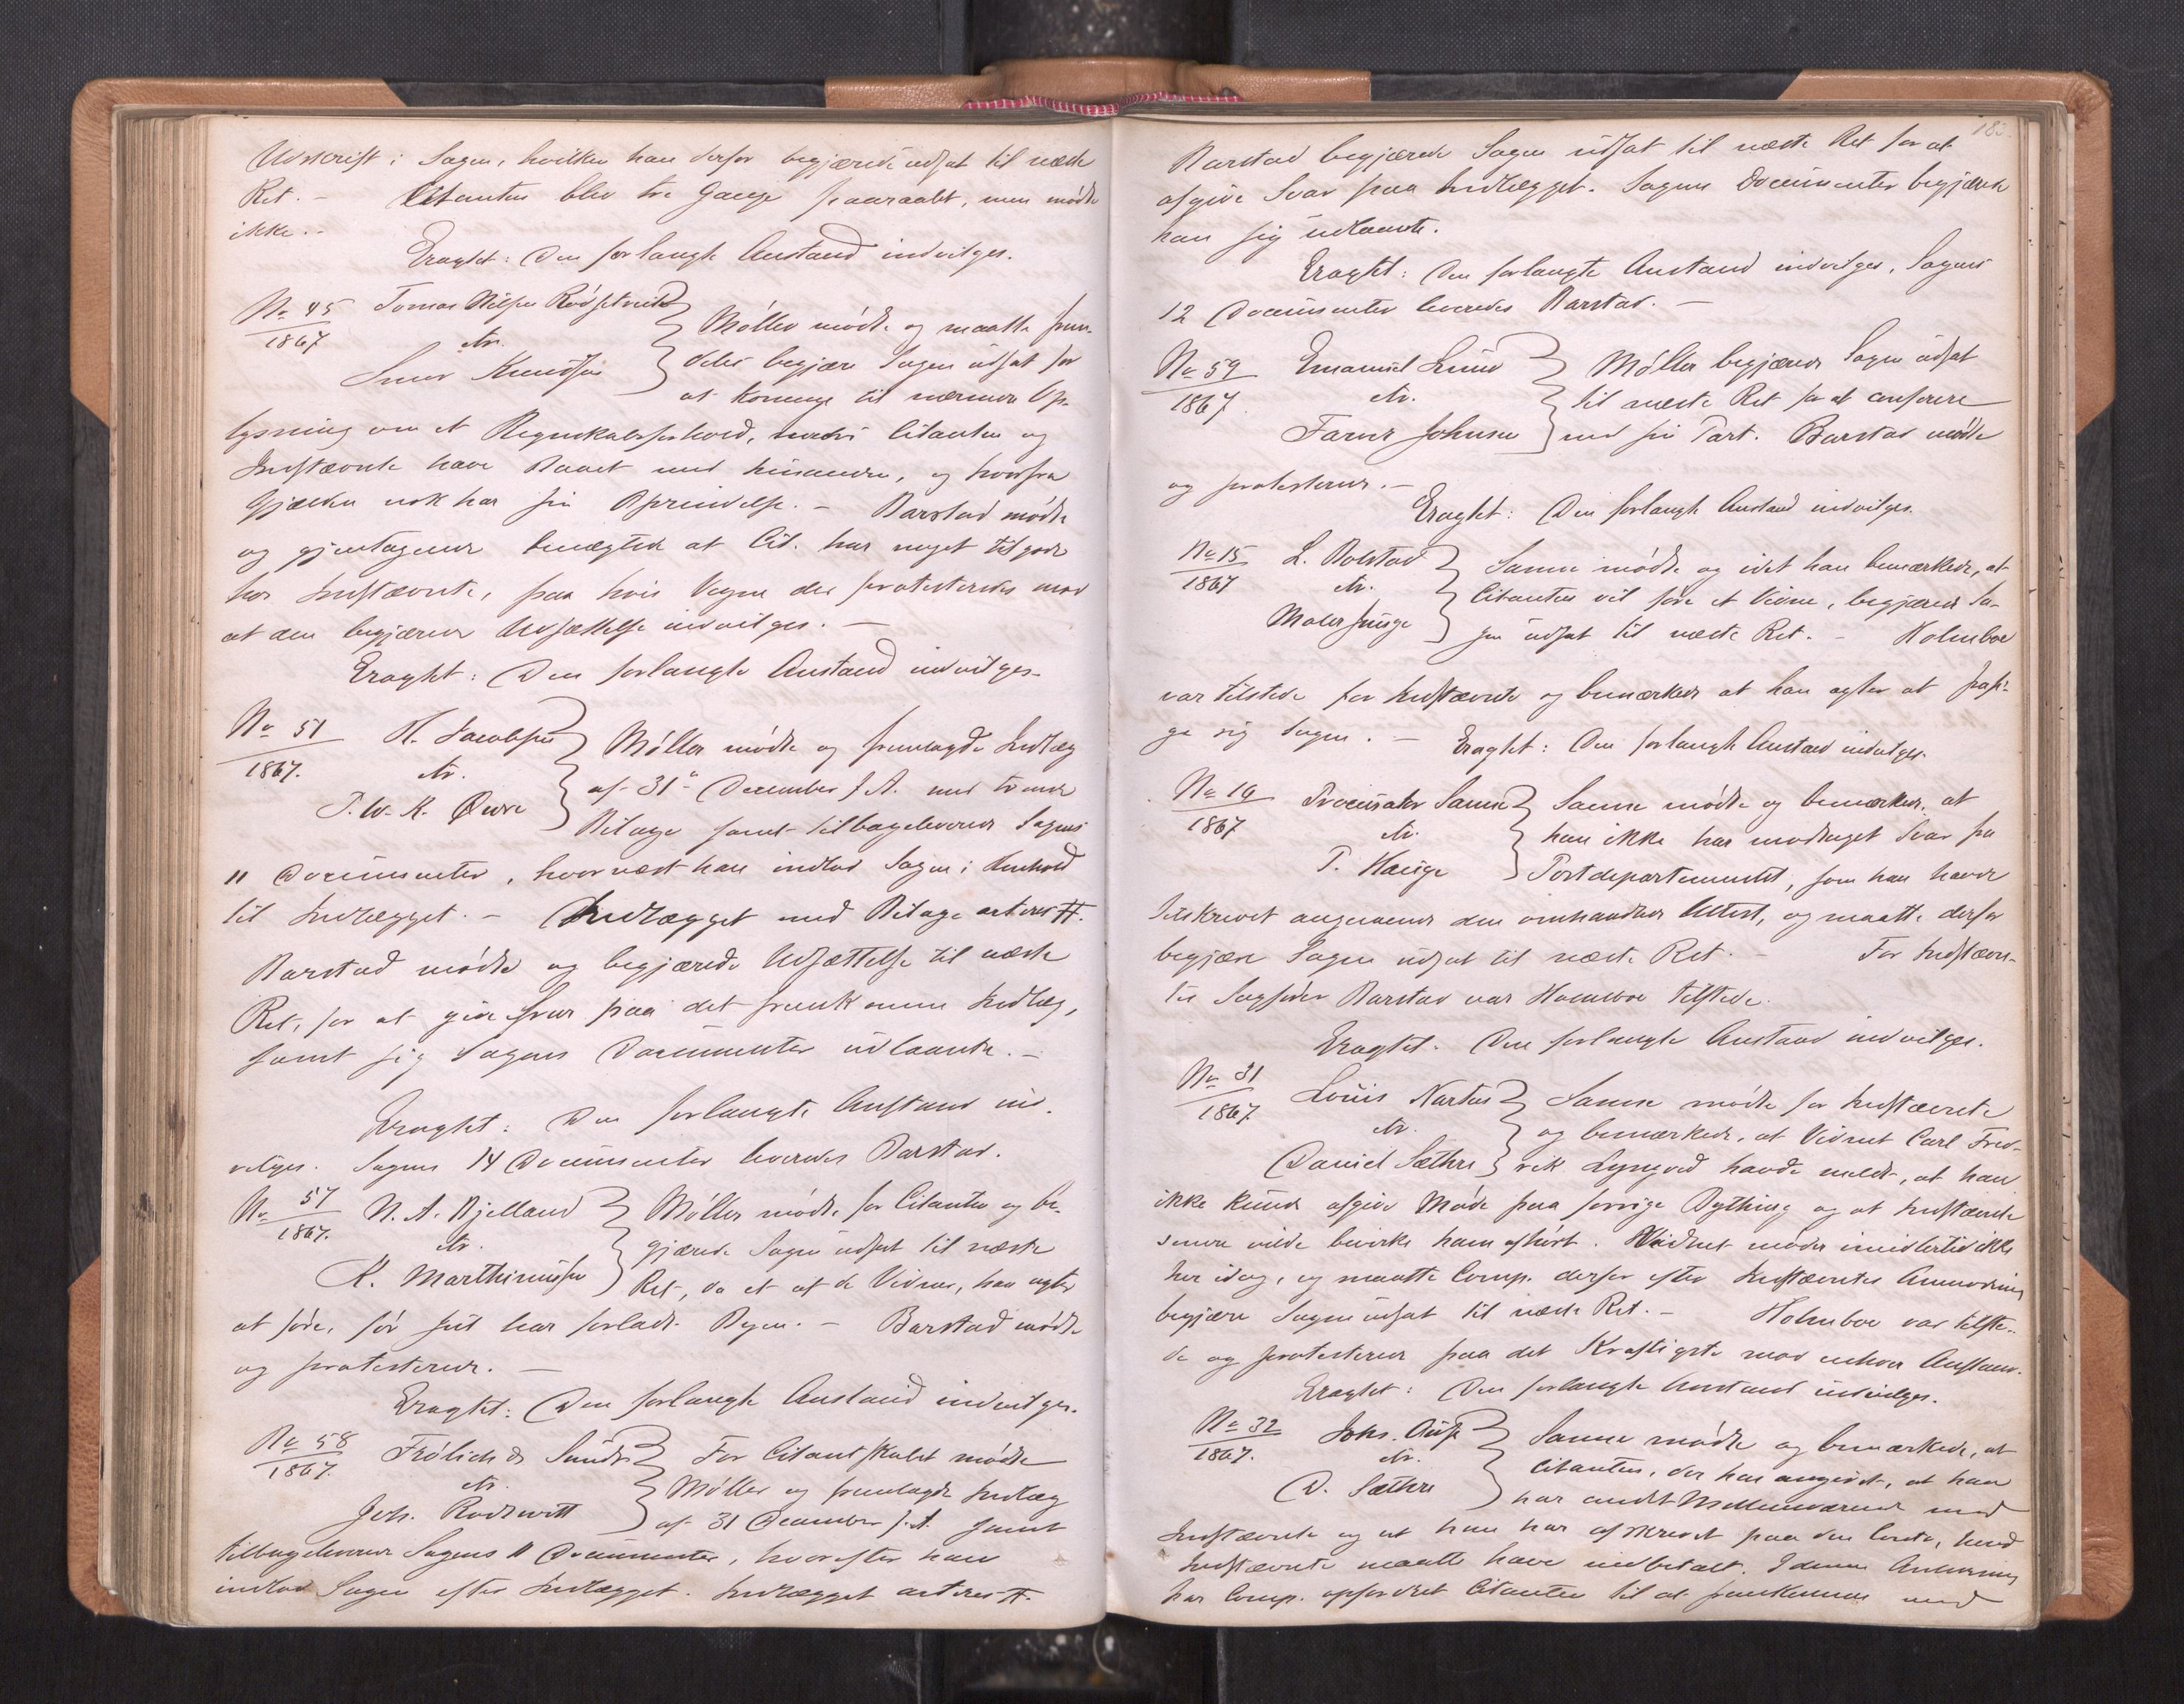 Udskrift i Sagen, hvilken han derfor begjærede udsat til næste
Ret. – Citanten blev tre Gange paaraabt, men mødte
ikke. –
Eragtet: Den forlangte Anstand indvilges.
No 45 Tomas Nilsen
1867 ctr.
Knudsen
Møller mødte og maatte frem-
deles begjære Sagen udsat for
at komme til nærmere Op-
lysning om et Regnskabsforhold, Citanten og
Indstævnte have havt med hinanden, og hvorfra
Gjælden nok har sin Oprindelse. – Barstad mødte
og gjentagende benægtede at Cit. har noget tilgode
hos Indstævnte, paa hvis Vegne der protesteredes mod
at den begjærede Udsættelse indvilges. –
Eragtet: Den forlangte Anstand indvilges –
No 51 H. Jacobsen
1867. ctr.
T. W. K. Øwre
Møller mødte og fremlagde Indlæg
af 31 December f. A. med
Bilage samt tilbageleverede Sagens
11 Documenter, hvornæst han indlod Sagen i Henhold
til Indlægget. – Indlægget med Bilage acteres #.
Barstad mødte og begjærede Udsættelse til næste
Ret, for at give Svar paa det fremkomne Indlæg,
samt sig Sagens Documenter udlaante. –
Eragtet: Den forlangte Anstand ind-
vilges. Sagens 14 Documenter leveredes Barstad.
No 57 N. A. Bjelland
1867. ctr.
K. Marthinussen
Møller mødte for Citanten og be-
gjærede Sagen udsat til næste
Ret, da et af de Vidner, han agter
at føre, for Tiden har forladt Byen. – Barstad mødte
og protesterede. –
Eragtet: Den forlangte Anstand indvilges.
No 58 Frölich &
1867. ctr.
Joh. Rodewitt
For Citantskabet mødte
Møller og fremlagde Indlæg
af 31 December f. A. samt
tilbageleverede Sagens 11 Documenter, hvorefter han
indlod Sagen efter Indlægget. Indlægget acteres #.
183.
Barstad begjærede Sagen udsat til næste Ret for at
afgive Svar paa Indlægget. Sagens Documenter begjærede
han sig udlaante.
Eragtet: Den forlangte Anstand indvilges, Sagens
12 Documenter leveredes Barstad. –
No 59 Emanuel Lund
1867. ctr.
Johnsen
Møller begjærede Sagen udsat
til næste Ret for at conferere
med sin Part. Barstad mødte
og protesterede. –
Eragtet: Den forlangte Anstand indvilges.
No 15 L. Bolstad
1867 ctr.
Maler Junge
Samme mødte og idet han bemærkede, at
Citanten vil føre et Vidne, begjærede Sa-
gen udsat til næste Ret. – Holmboe
var tilstede for Indstævnte og bemærkede at han agter at paasi-
ge sig Sagen. – Eragtet: Den forlangte Anstand indvilges.
No 19 Procurator Sanne
1867 ctr.
T. Hauge
Sanne mødte og bemærkede, at
han ikke har modtaget Svar fra
Postdepartementet, som han havde
tilskrevet angaaende den omhandlede Attest, og maatte derfor
begjære Sagen udsat til næste Ret. – For Indstævn-
tes Sagfører Barstad var Holmboe tilstede.
Eragtet. Den forlangte Anstand indvilges.
No 31 Louis
1867. ctr.
Daniel Sæthre
Sanne mødte for Indstævnte
og bemærkede, at Vidnet Carl Fred-
rik havde meldt, at han
ikke kunde afgive Møde paa forrige Bything og at Indstævnte
senere vilde bevirke ham afhørt. Vidnet møder imidlertid ikke
her idag, og maatte Comp. derfor efter Indstævntes Anmodning
begjære Sagen udsat til næste Ret. – Holmboe var tilste-
de og protesterede paa det Kraftigste mod enhver Anstand.
Eragtet: Den forlangte Anstand indvilges.
No 32 Johs.
1867. ctr.
D. Sæthre
Sanne mødte og bemærkede, at
Citanten, der har angivet, at han
har andet Mellemværende med
Indstævnte og at han har afskrevet paa den Conto, hvad
Indstævnte maatte have indbetalt. I denne Anledning
har Comp. opfordret Citanten til at fremkomme med